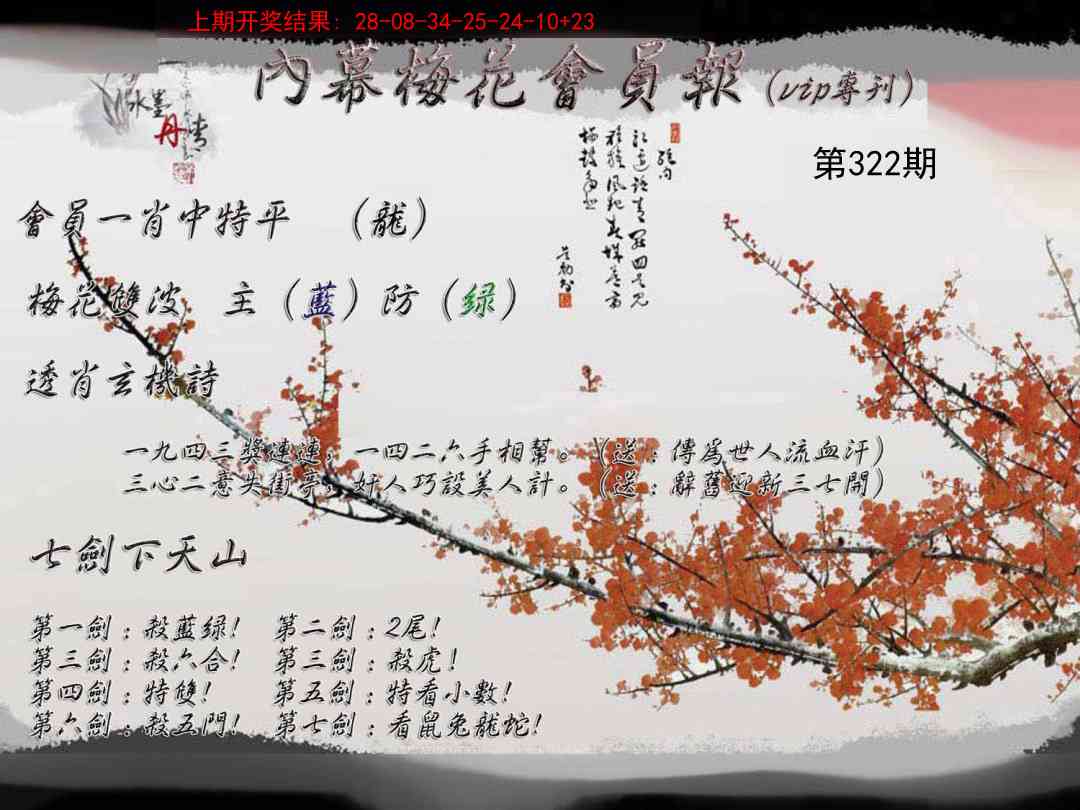 上期开奖结果: 28-08-34-25-24-10+23
內幕梅花會員報(vip專刊)
水墨
丹青
第322期
會員一肖中特平 (龍)
梅花雙波 主(藍)防(绿)
透肖玄機詩
一九四三獎連連,一四二六手相幫。(送:傳爲世人流血汗)
三心二意失街亭,奸人巧設美人計。(送:辭舊迎新三七開)
七劍下天山
第一劍:殺藍绿! 第二劍:2尾!
第三劍:殺六合! 第三劍:殺虎!
第四劍:特雙! 第五劍:特看小數!
第六劍:殺五門! 第七劍:看鼠兔龍蛇!